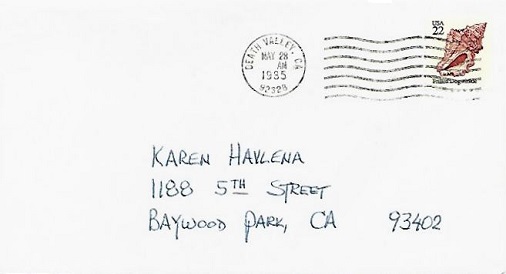 DEATH VALLEY, CA
MAY 28
AM
1985
92328
USA
22
Frilled Dogwinkle
KAREN HAVLENA
1188 5TH STREET
BAYWOOD PARK, CA 93402